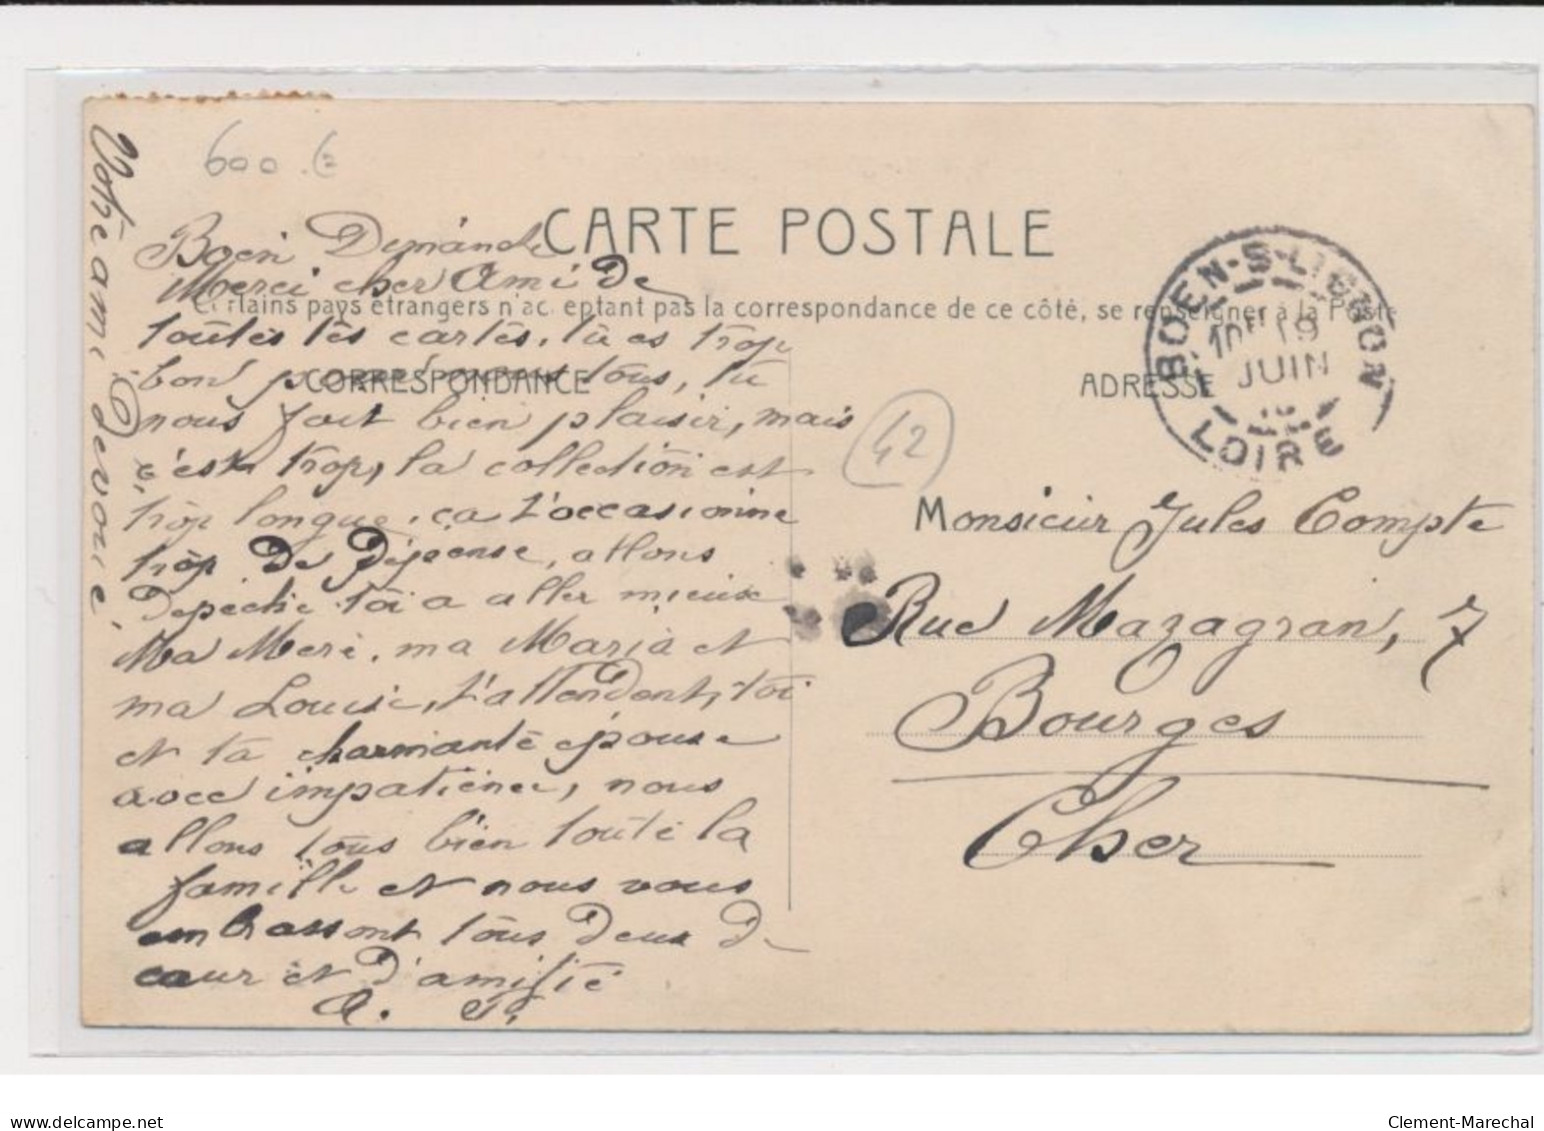 600 €
CARTE POSTALE
Certains pays étrangers n'acceptant pas la correspondance de ce côté, se renseigner à la Poste
CORRESPONDANCE
ADRESSE
BOEN-S-LIGNON
10E 19
JUIN
LOIRE
42
Boen Dimanche
Merci cher Ami De
toutes tes cartes, tu es trop
bon pour nous tous, tu
nous fait bien plaisir, mais
c'est trop, la collection est
trop longue, ça t'occasionne
trop De Dépense, allons
Dépéche toi a aller mieux
Ma Mere, ma Maria et
ma Louise, t'attendent, toi
et ta charmante épouse
avec impatience, nous
allons tous bien toute la
famille et nous vous
embrassont tous Deux De
cœur et D'amitié
Votre ami Devoué,
Monsieur Jules Compte
Rue Mazagran, 7
Bourges
Cher
delcampe.net
Clement-Marechal